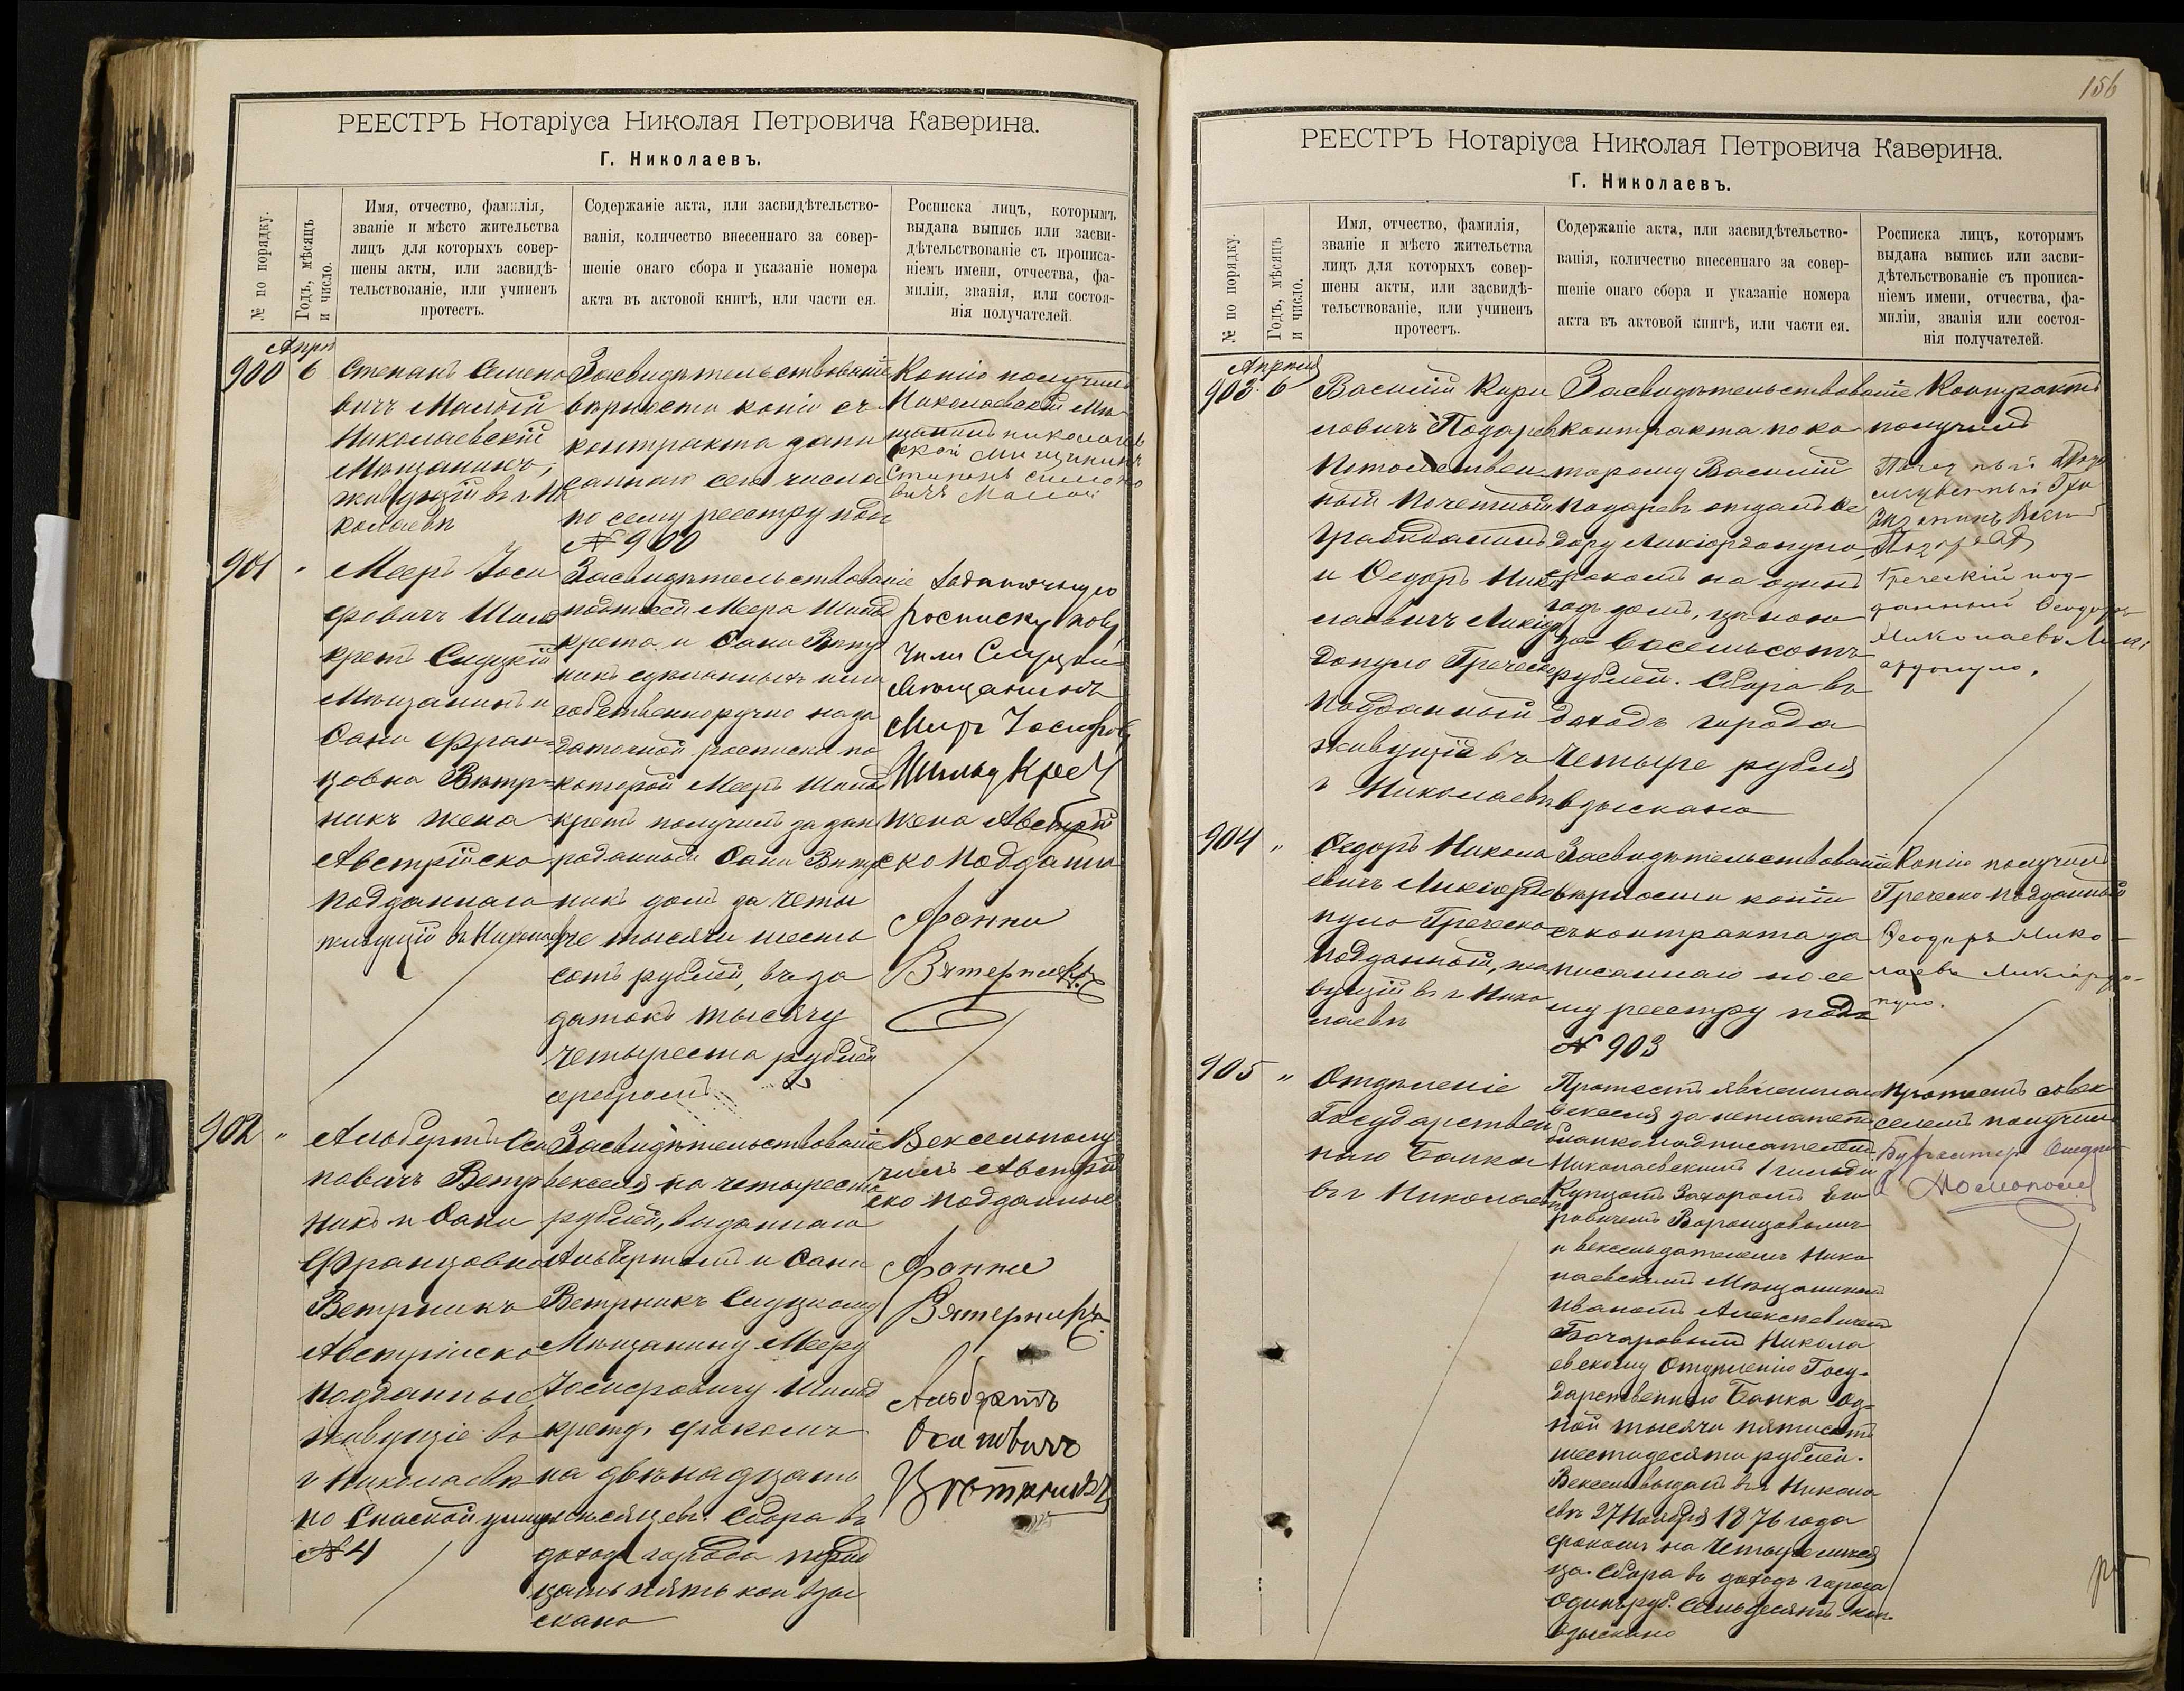 РЕЕСТРЪ Нотаріуса Николая Петровича Каверина.
Г. Николаевъ.
№ по порядку.
Годъ, мѣсяцъ
и число.
Имя, отчество, фамилія,
званіе и мѣсто жительства
лицъ для которыхъ совер-
шены акты, или засвидѣ-
тельствованіе, или учиненъ
протестъ.
Содержаніе акта, или засвидѣтельство-
ванія, количество внесеннаго за совер-
шеніе онаго сбора и указаніе номера
акта въ актовой книгѣ, или части ея.
Росписка лицъ, которымъ
выдана выпись или засви-
дѣтельствованіе съ прописа-
ніемъ имени, отчества, фа-
миліи, званія, или состоя-
нія получателей.
Апрѣ
900 6
Степанъ Семено
вичъ Малый
Николаевскій
Мѣщанинъ,
живущій въ г. Ни
колаевѣ
Засвидѣтельствованіе
вѣрности копіи съ
контракта запи
саннаго сего числа
по сему реестру подъ
№ 900
Копію получилъ
Николаевскій Мѣ
щанинъ николаев
ской мищинин
Степанъ симоно
вичъ Малой
901 "
Мееръ Іоси
фовичъ Шильд
кретъ Слуцкій
Мѣщанинъ и
Фани Фран-
цовна Вѣтр-
никъ жена
Австрійско
подданнаго
живущіе въ Николаевѣ
Засвидѣтельствованіе
подписей Меера Шильд
крета и Фани Вѣтр
никъ сдѣланныхъ ими
собственноручно на за
даточной роспискѣ по
которой Мееръ Шильд
кретъ получилъ за зап
роданный Фани Вѣтр
никъ домъ за четы
ре тысячи шесть
сотъ рублей, въ за
датокъ тысячу
четыреста рублей
серебромъ
Задаточную
росписку полу
чили Слуцкій
Мѣщанинъ
Меиръ Іосифовъ
Шильдкрет
жена Австрій
ско подданна
Фанни
Вѣтерникъ
902 "
Альбертъ Оси
повичъ Ветр
никъ и Фани
Францовна
Ветрникъ
Австрійско
подданные
живущіе въ
г Николаевѣ
по Спаской улицѣ
№ 4
Засвидѣтельствованіе
векселя на четыреста
рублей, выданнаго
Альбертомъ и Фани
Ветрникъ Слуцкому
Мѣщанину Мееру
Іосифовичу Шильд
крету, срокомъ
на двѣнадцать
мѣсяцевъ. Сбора въ
доходъ города тряд
цать пять коп взы
скано
Вексель полу
чилъ Австрій
ско подданные
Фанни
Вѣтерникъ
Альбертъ
Осиповичъ
Вѣтрникъ
156
РЕЕСТРЪ Нотаріуса Николая Петровича Каверина.
Г. Николаевъ.
№ по порядку.
Годъ, мѣсяцъ
и число.
Имя, отчество, фамилія,
званіе и мѣсто жительства
лицъ для которыхъ совер-
шены акты, или засвидѣ-
тельствованіе, или учиненъ
протестъ.
Содержаніе акта, или засвидѣтельство-
ванія, количество внесеннаго за совер-
шеніе онаго сбора и указаніе номера
акта въ актовой книгѣ, или части ея.
Росписка лицъ, которымъ
выдана выпись или засви-
дѣтельствованіе съ прописа-
ніемъ имени, отчества, фа-
миліи, званія или состоя-
нія получателей.
Апрѣля
903. 6
Василій Кири
ловичъ Подаревъ
Потомствен
ный Почетный
Гражданинъ
и Ѳедоръ Нико
лаевичъ Ликіор
допуло Греческо
подданный
живущіе въ
г Николаевѣ
Засвидѣтельствованіе
контракта по ко
торому Василій
Подаревъ отдалъ Ѳе
дору Ликіордопуло
срокомъ на одинъ
годъ домъ, цѣною
за восемьсотъ
рублей. Сбора въ
доходъ города
Четыре рубля
взыскано
Контрактъ
получилъ
Греческій под-
данный Ѳеодоръ
Николаевъ Лики
ардопуло.
904 "
Ѳедоръ Никола
евичъ Ликіордо
пуло Греческо
подданный, жи
вущій въ г Нико
лаевѣ
Засвидѣтельствованіе
вѣрности копіи
съ контракта за
писаннаго по се
му реестру подъ
№ 903
Копію получилъ
Греческо подданный
Ѳеодоръ Нико-
лаевъ Ликіардо-
пуло.
905 "
Отдѣленіе
Государствен
наго Банка
въ г Николаевѣ
Протестъ явленнаго
векселя за неплатежъ
бланконадписателемъ
Николаевскимъ 1 гильдіи
Купцомъ Захаромъ Его
ровичемъ Воронцовымъ
и векселедателемъ Нико
лаевскимъ Мѣщаниномъ
Иваномъ Алексѣевичемъ
Бочаровымъ Никола
евскому Отдѣленію Госу-
дарственнаго Банка Од-
ной тысячи пятисотъ
шестидесяти рублей.
Вексель выданъ въ г Никола
евѣ 27 Ноября 1876 года
срокомъ на четыре мѣся
ца. Сбора въ доходъ города
Одинъ руб. семьдесятъ коп.
взыскано
Протестъ съ век
селемъ получилъ
Бухгалтеръ